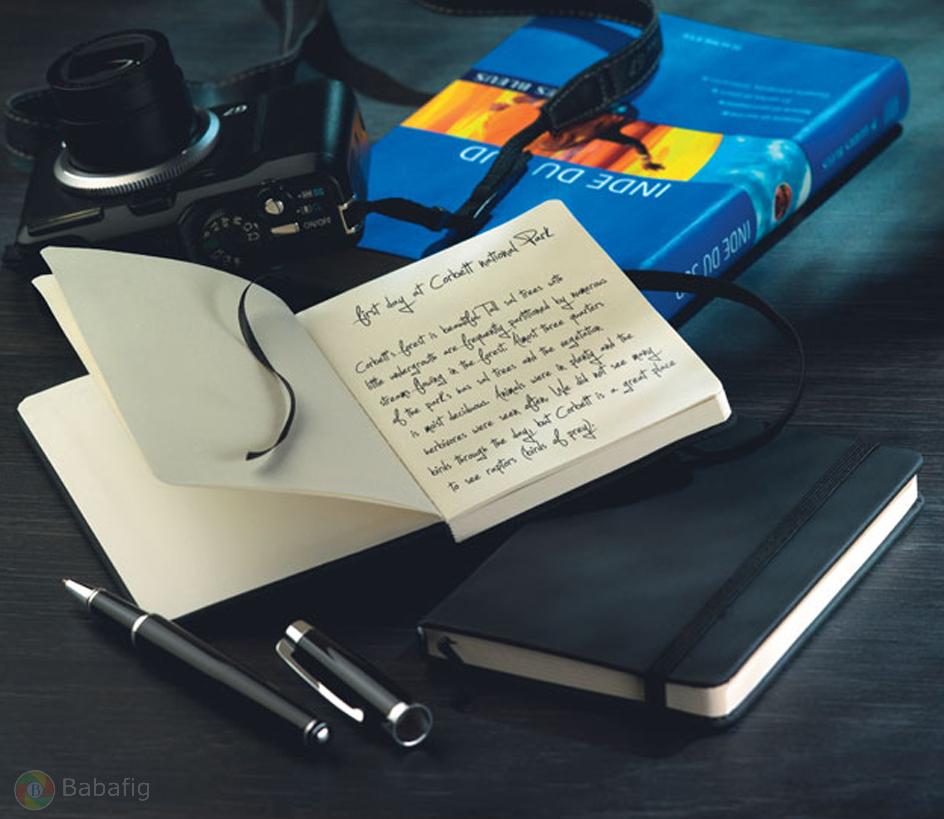 G7
ON/OFF
ES BLEUS
INDE DU UD
GUIDES BLEUS
INDE DU
first day at Corbett national Park
Corbett's forest is beautiful. Tall sal trees with
little undergrowth are frequently partitioned by numerous
streams flowing in the forest. Almost three quarters
of the park's has sal trees and the vegetation
is moist deciduous. Animals were in plenty and the
herbivores were seen often. We did not see many
birds through the day, but Corbett is a great place
to see raptors (birds of prey).
B Babafig